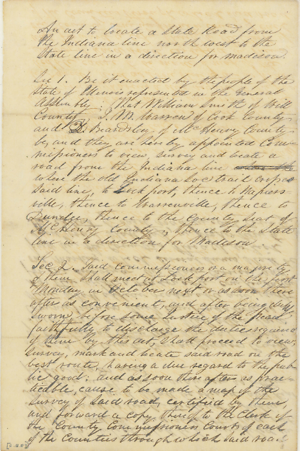 An act to locate a State Road from
the Indiana line north west to the
State line in a direction for Madison
Sec 1. Be it enacted by the people of the
State of Illinois represented in the General
Assembly, That William Smith of Will
County, J. M. Warren of Cook County
and Beardsley of McHenry County
be, and they are hereby appointed Com-
missioners to view, survey and locate a
road from the Indiana line
where the road crosses
said line, to Lockport, thence to Napers-
ville, thence to Warrenville, thence to
Dundee, thence to the County seat of
McHenry County, thence to the State
line in a direction for Madison.
Sec 2. Said commissioners or a majority
of them shall meet at Lockport on the first
Monday in October next or as soon there
after as convenient, and after being duly
sworn before some Justice of the Peace
faithfully to discharge the duties required
of them by this act, shall proceed to view,
survey, mark and locate said road on the
best route, having a due regard to the pub-
lic good: and as soon thereafter as prac-
ticable cause to be made a map of the
survey of said road, certified by them,
and forward a copy thereof to the Clerk of
the County Commissioners Court of each
of the Counties through which said road